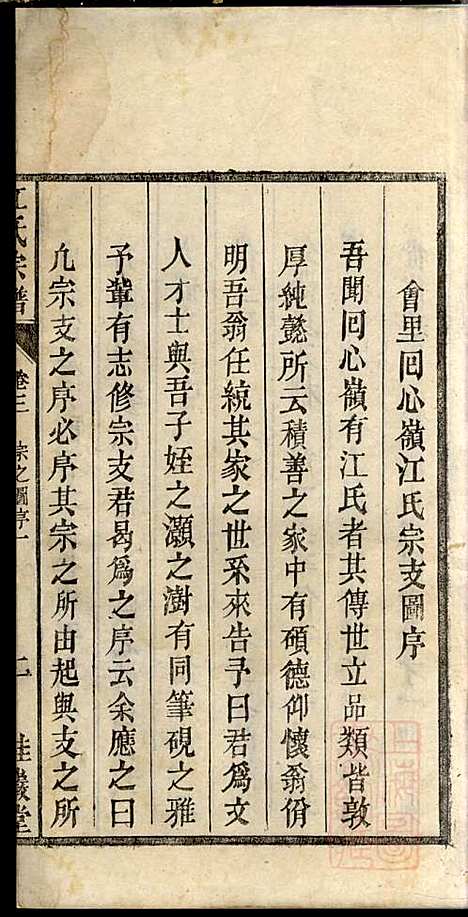 會里囘心嶺江氏宗支圖序
吾聞囘心嶺有江氏者其傳世立品類皆敦
厚純懿所云積善之家中有碩德仰懷翁俏
明吾翁任統其家之世系來告予曰君爲文
人才士與吾子姪之灝之澍有同筆硯之雅
予輩有志修宗支君曷爲之序云余應之曰
凢宗支之序必序其宗之所由起與支之所
江氏宗譜 卷三 宗之圖序一 二 桂巖堂